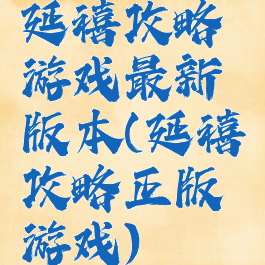 延禧攻略
游戏最新
版本(延禧
攻略正版
游戏)